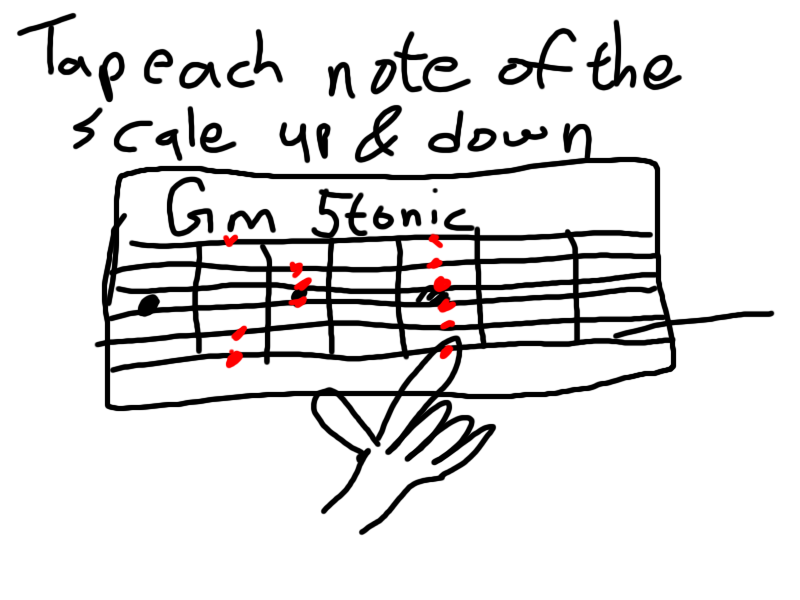 Tap each note of the
scale up & down
Gm 5tonic